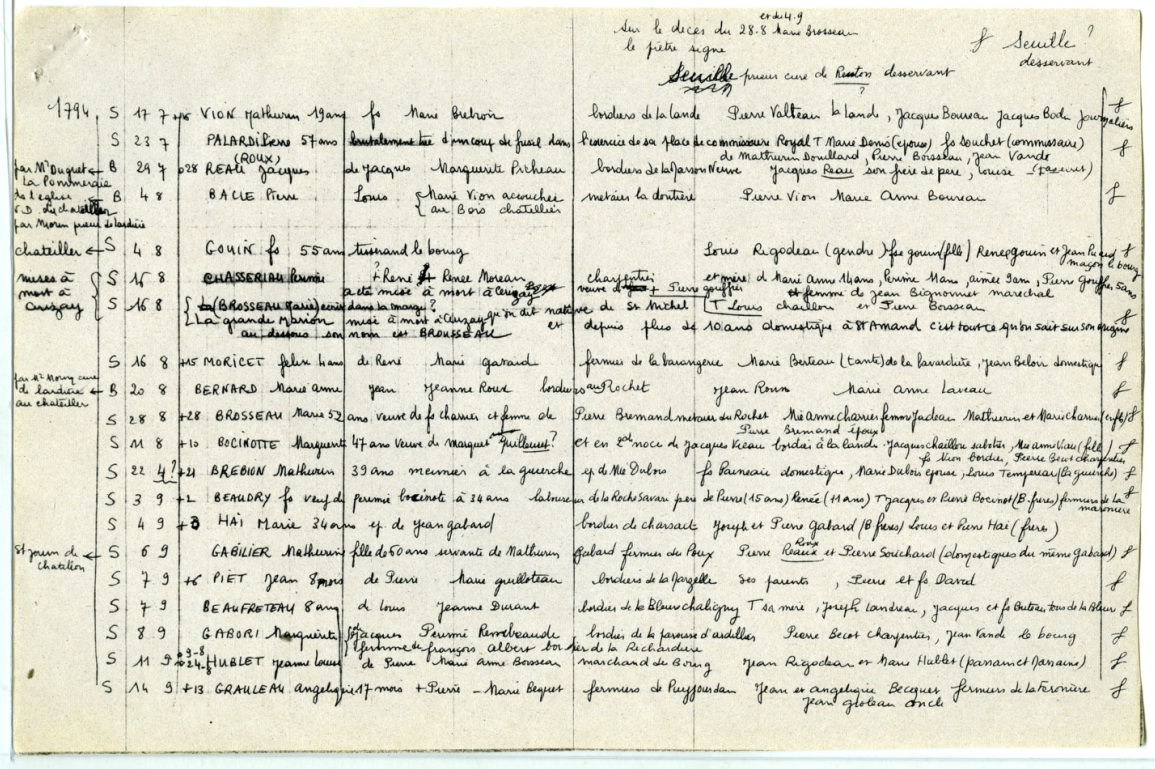 et du 4.9
sur le deces du 28.8 Marie Brosseau
le prêtre signe
f Seuille ?
desservant
Seuille prieur cure de Reuton desservant
?
1794 S 17 7 +16 VION Mathurin 19 ans fs Marie Brebion bordiers de la lande Pierre Valteau la land, Jacques Boureau Jacques Bodin journaliers f
S 23 7 PALARDI Pierre 57 ans brutalement tué d'un coup de fusil dans l'exercice de sa place de commissaire Royal T Marie Denis (epouse) fs Souchet (commissaire) f
(ROUX) de Mathurin Douillard, Pierre Boisseau, Jean Vande
par Mr Duguet ← B 29 7 °28 REAU Jacques de Jacques Marguerite Picheau bordiers de la Maison Neuve Jacques Reau son frere de pere, Louise
La Pommeraie
de l'eglise B 4 8 BACLE Pierre Louis { Marie Vion accouchee métaiers la dontière Pierre Vion Marie Anne Boureau f
N.D. du chatellier { au Bois chatellier
par Morin prieur de lardière
chateiller ← S 4 8 GOUIN fs 55 ans tisserand le bourg Louis Rigodeau (gendre) fse gouin (fille) Rene gouin et Jean Picard f
maçon le bourg
mises à { S 15 8 CHASSERIAU Perrine + René Renee Moreau charpentier et mère d Marie Anne 14 ans, Perrine 11 ans, aimée 9 ans, Pierre gouffrier 5 ans
mort à a été mise à mort à Cruzay veuve de + Pierre gouffrier et femme de Jean Bignonnet marechal
Cruzay S 16 8 { (BROSSEAU Marie) ecrit dans la marge ? qu'on dit native de St Michel T Louis chaillou et Pierre Boisseau
La grande Marion mise à mort à Cruzay et depuis plus de 10 ans domestique à St Amand c'est tout ce qu'on sait sur son origine f
au dessous son nom est BROUSSEAU
S 16 8 +15 MORICET felix 4 ans de René Marie gabard fermier de la barangerie Marie Berteau (tante) de la lavardière, Jean Beloin domestique f
par Mr Morin cure
de lardière ← B 20 8 BERNARD Marie anne Jean Jeanne Roux bordiers au Rochet Jean Roux Marie Anne Laveau f
au chateiller
S 28 8 +28 BROSSEAU Marie 52 ans. veuve de fs charrier et femme de Pierre Bremand metayer du Rochet Mie Anne charrier femme Judeau Mathurin et Marie charrier (enfts) f
Pierre Bremand epoux
S 11 8 +10 BOCINOTTE Marguerite 47 ans veuve de marquet Guilleuet? et en 2de noce de Jacques Vieau bordier à la lande. Jacques chaillou sabotier Mie anne Viau (fille) f
fs Vion bordier, Pierre Becot charpentier
S 22 4? +21 BREBION Mathurin 39 ans meunier à la guierche ep. de Mie Dubois fs Parneaix domestique, Marie Dubois epouse, Louis Tempereau (la guierche) f
S 3 9 +2 BEAUDRY fs veuf de perrine bocinote à 34 ans laboureur de la Roche Savari pere de Pierre (15 ans) Renée (11 ans) T Jacques et Pierre Bocinot (B. freres) fermiers de la f
maroniere
S 4 9 +3 HAI Marie 34 ans ep. de Jean gabard bordier de charsact Joseph et Pierre Gabard (B freres) Louis et Pierre Hai (freres)
Roux
St Jouin de ← S 6 9 GABILIER Mathurine fille de 60 ans servante de Mathurin gabard fermier du Poux Pierre Reaux et Pierre Souchard (domestiques du même gabard) f
chatillon
S 7 9 +6 PIET Jean 8 mois de Pierre Marie guilloteau bordiers de la Margelle ses parents, Pierre et fs David f
S 7 9 BEAUFRETEAU 8 ans de Louis Jeanne Durant bordier de la Bleure chaligny T sa mère, Joseph Landreau, Jacques et fs Buteau tous de la Bleure f
S 8 9 GABORI Marguerite { de Jacques Perrine Rembeaude bordier de la paroisse d'ardilliers Pierre Becot charpentier, Jean Vande le bourg f
{ femme de françois albert bordier de la Richardiere
S 11 9 ° 9-8 ° 24-8 HUBLET Jeanne Louise de Pierre Marie Anne Boisseau marchand de Bourg Jean Rigodeau et Marie Hublet (parrain et Marraine) f
S 14 9 +13 GRAULEAU angelique 17 mois + Pierre - Marie Bequet fermiers de Puyjourdan Jean et angelique Becquet fermiers de la feroniere f
Jean groleau oncle